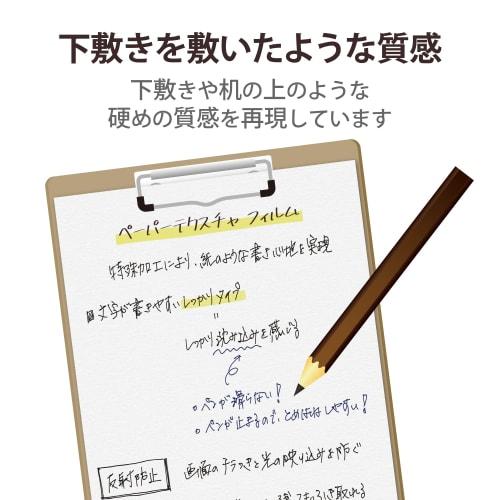 下敷きを敷いたような質感
下敷きや机の上のような
硬めの質感を再現しています
ペーパーテクスチャフィルム
特殊加工により、紙のような書き心地を実現
文字が書きやすいしっかりタイプ
=
しっかり沈み込みを感じる
○ペンが滑らない!
○ペンが止まるので、とめはねしやすい!
反射防止
画面のチラつきと光の映り込みを防ぐ